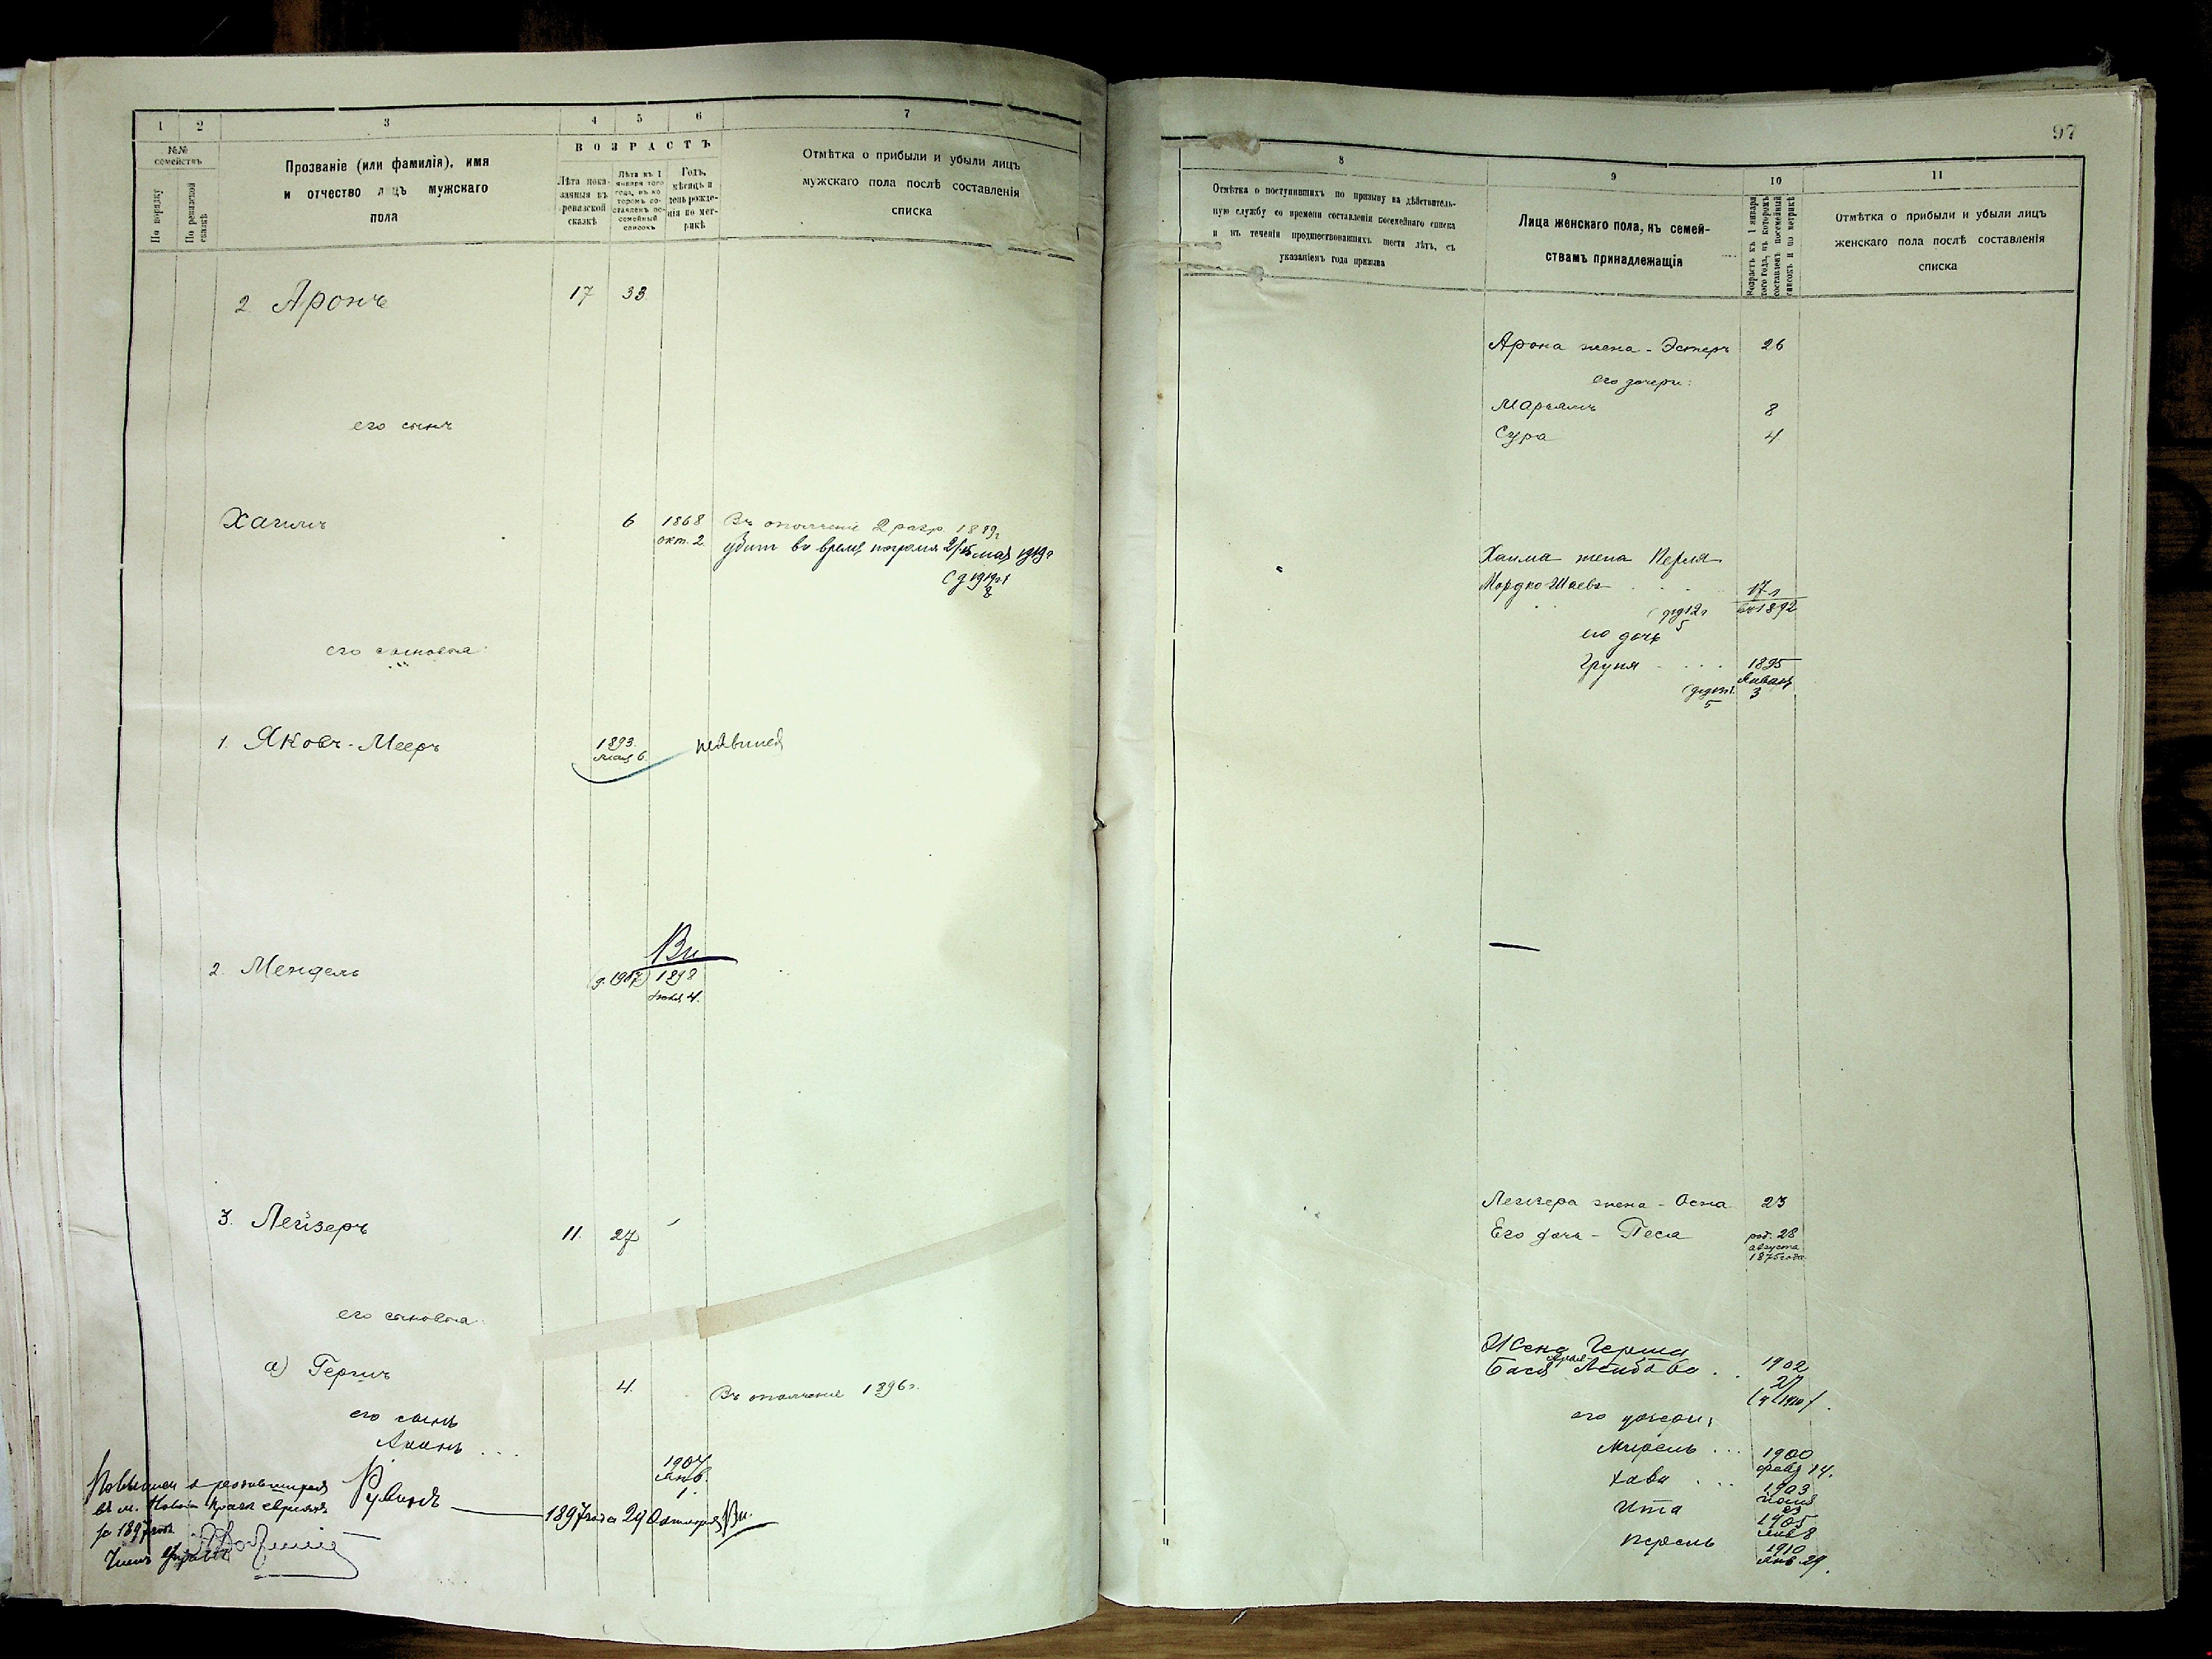 1 2 3 4 5 6 7
№№ семействъ
По порядку
По ревизской сказкѣ
Прозваніе (или фамилія), имя
и отчество лицъ мужскаго
пола
ВОЗРАСТЪ
Лѣта пока-
занныя въ
ревизской
сказкѣ
Лѣта къ 1
января того
года, въ ко
торомъ со-
ставленъ по-
семейный
списокъ
Годъ,
мѣсяцъ и
день рожде-
нія по мет-
рикѣ
Отмѣтка о прибыли и убыли лицъ
мужскаго пола послѣ составленія
списка
2 Аронъ 17 33
его сынъ
Хаимъ 6 1868 Въ ополченіе 2 разр. 1889г
окт. 2. убит во время погрома 2/15 мая 1919г
его сыновья:
1. Яковъ-Мееръ 1893.
мая 6.
неявился
Ви
2. Мендель (д. 1917) 1898
4.
3. Лейзеръ 11. 27
его сыновья:
а) Гершъ 4. Въ ополченіе 1896г.
его сынъ
1904
янв.
1.
Рувинъ 1897 года 24 Октября Ви.
за 1897 годъ
97
8 9 10 11
Отмѣтка о поступившихъ по призыву на дѣйствитель-
ную службу со времени составленія посемейнаго списка
и въ теченіи предшествовавшихъ шести лѣтъ, съ
указаніемъ года призыва
Лица женскаго пола, къ семей-
ствамъ принадлежащія
Возрастъ къ 1 января
того года, въ которомъ
составленъ посемейный
списокъ и по метрикѣ
Отмѣтка о прибыли и убыли лицъ
женскаго пола послѣ составленія
списка
Арона жена - Эстеръ 26
его дочери:
Марьямъ 8
Сура 4
Хаима жена Перля
Мордко-Шаева 17 л
1892
его дочь
Груня 1895
Января
3
Лейзера жена - Осна 23
Его дочь - Песя род. 28
августа
1875 года
Жена Герша
Бася Арья-Лейбова 1902
27
его дочери:
Мирель 1900
февр 14.
Хава 1903
23
Ита 1905
янв 8
Перель 1910
янв. 29.